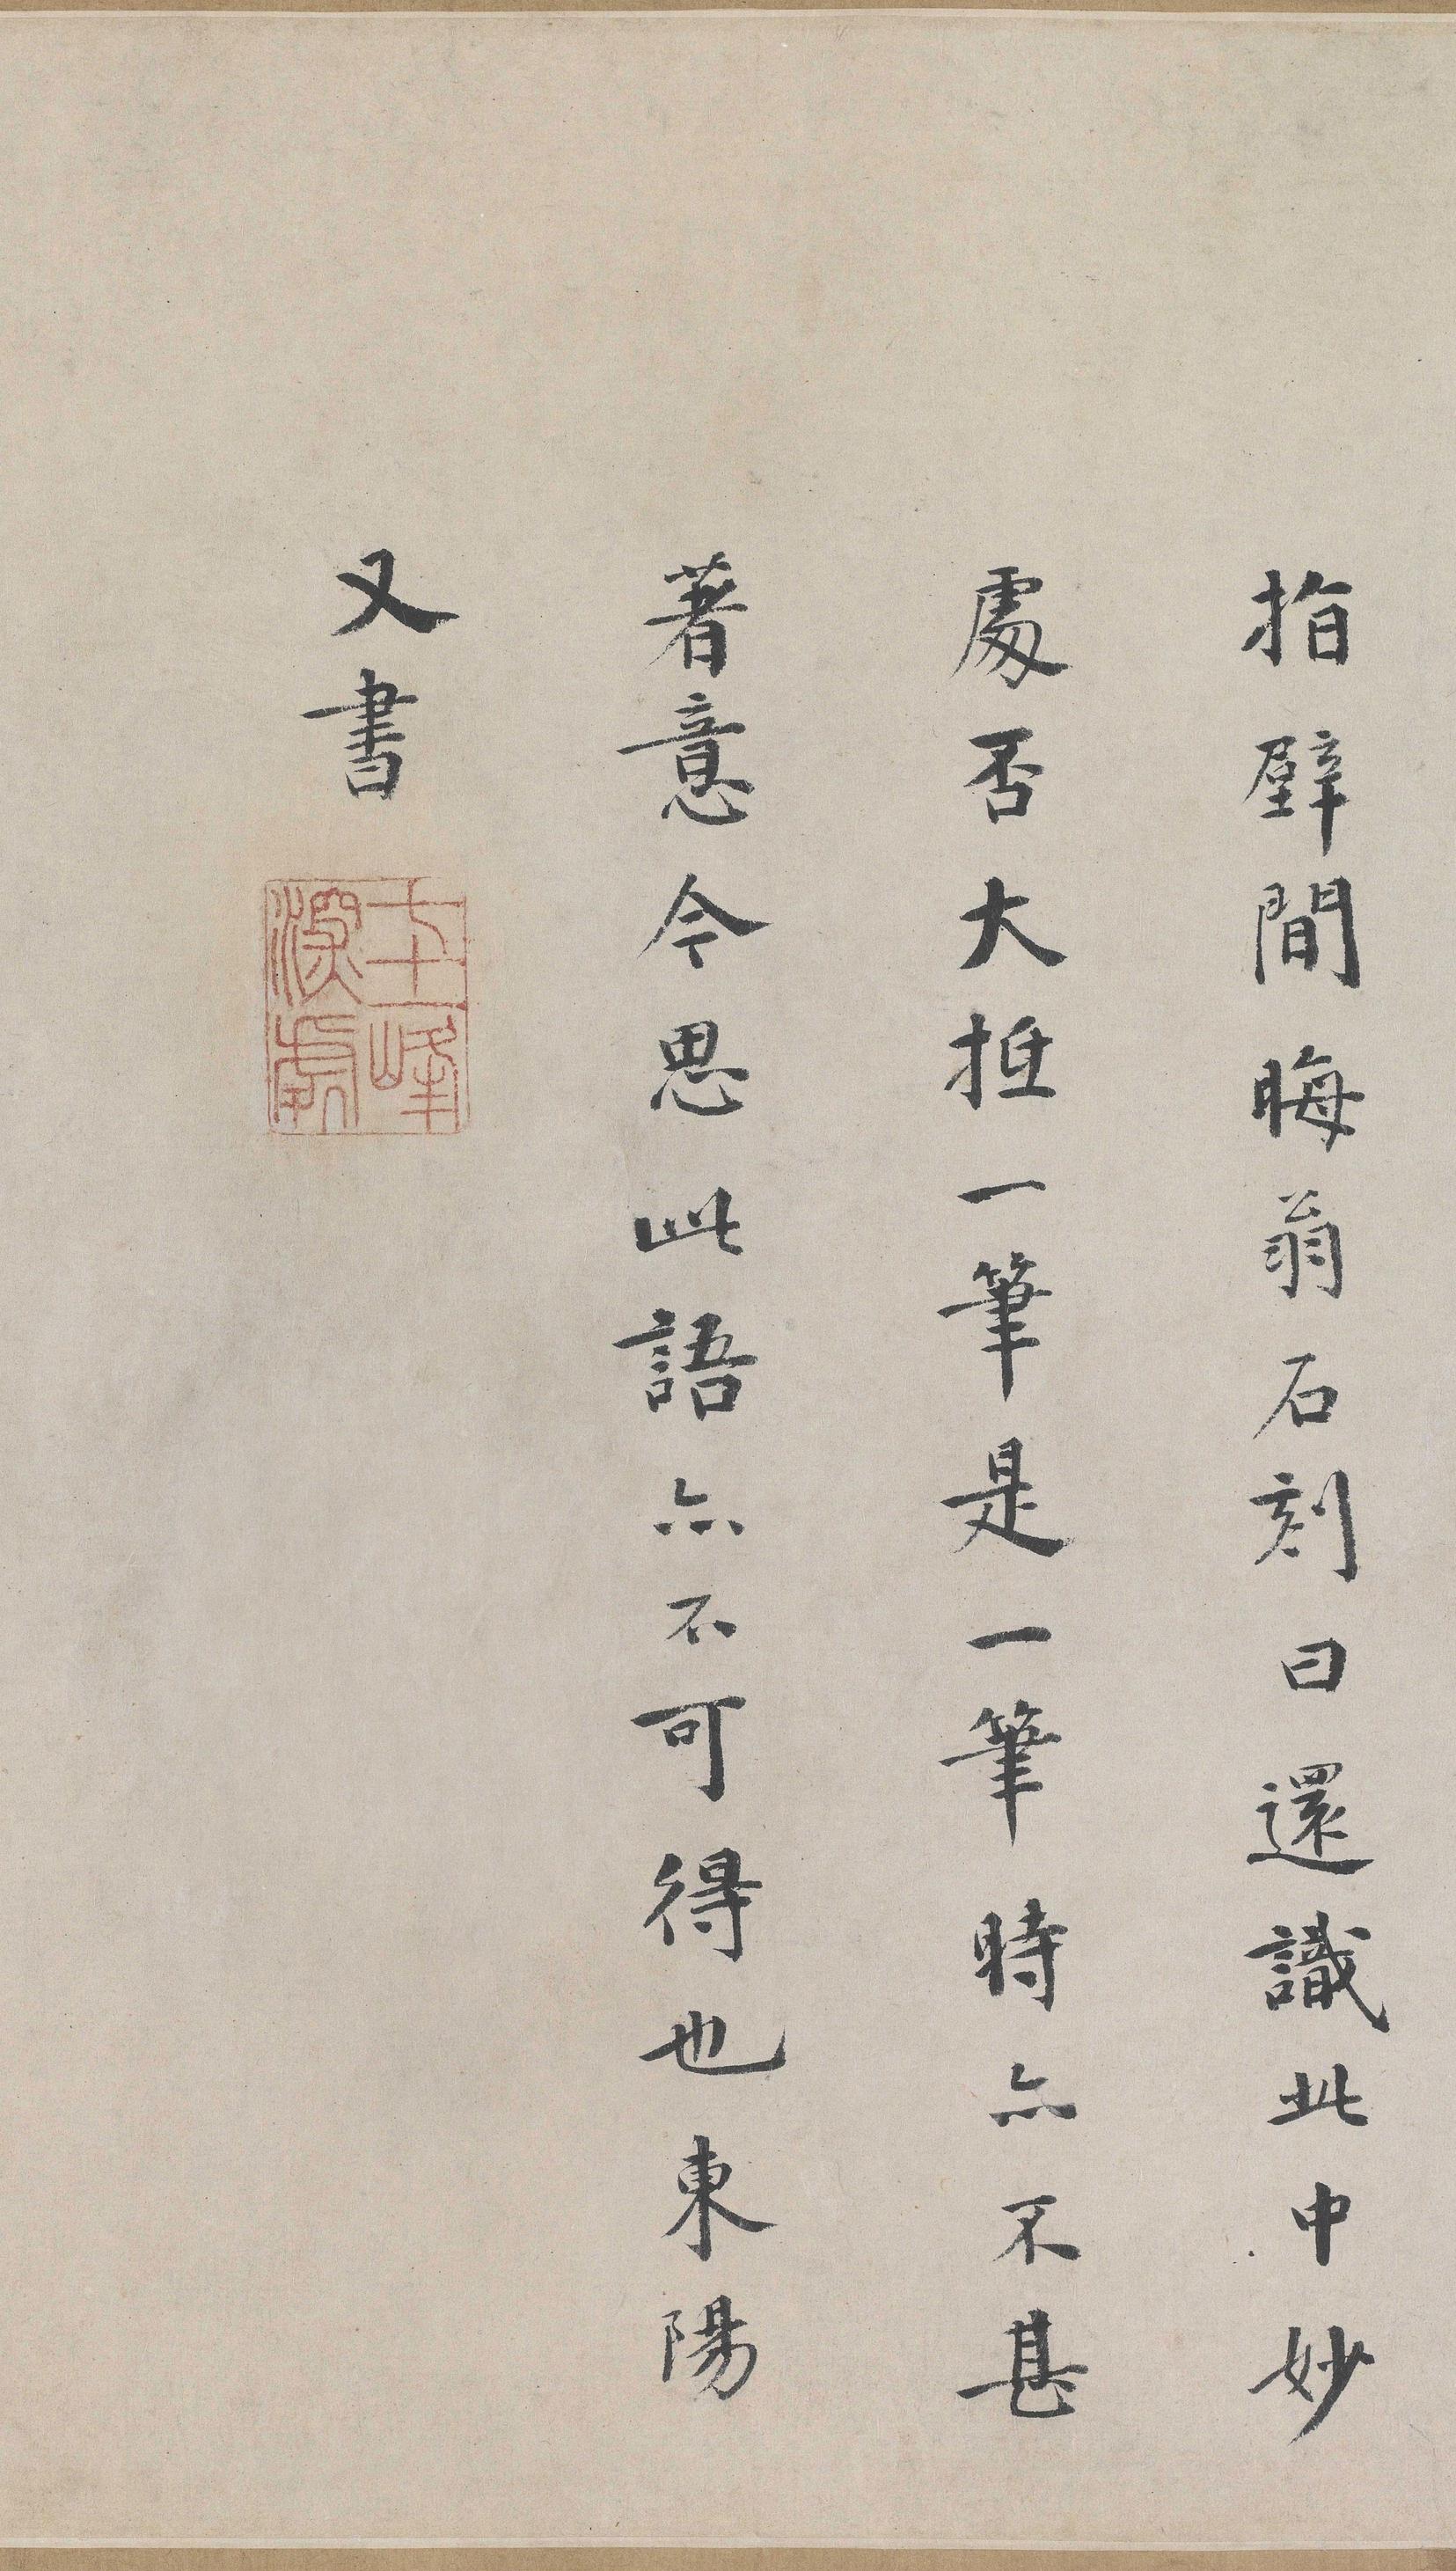 指壁間晦翁石刻曰還識此中妙
處否大抵一筆是一筆時亦不甚
著意今思此語亦不可得也東陽
又書
七十峰深處